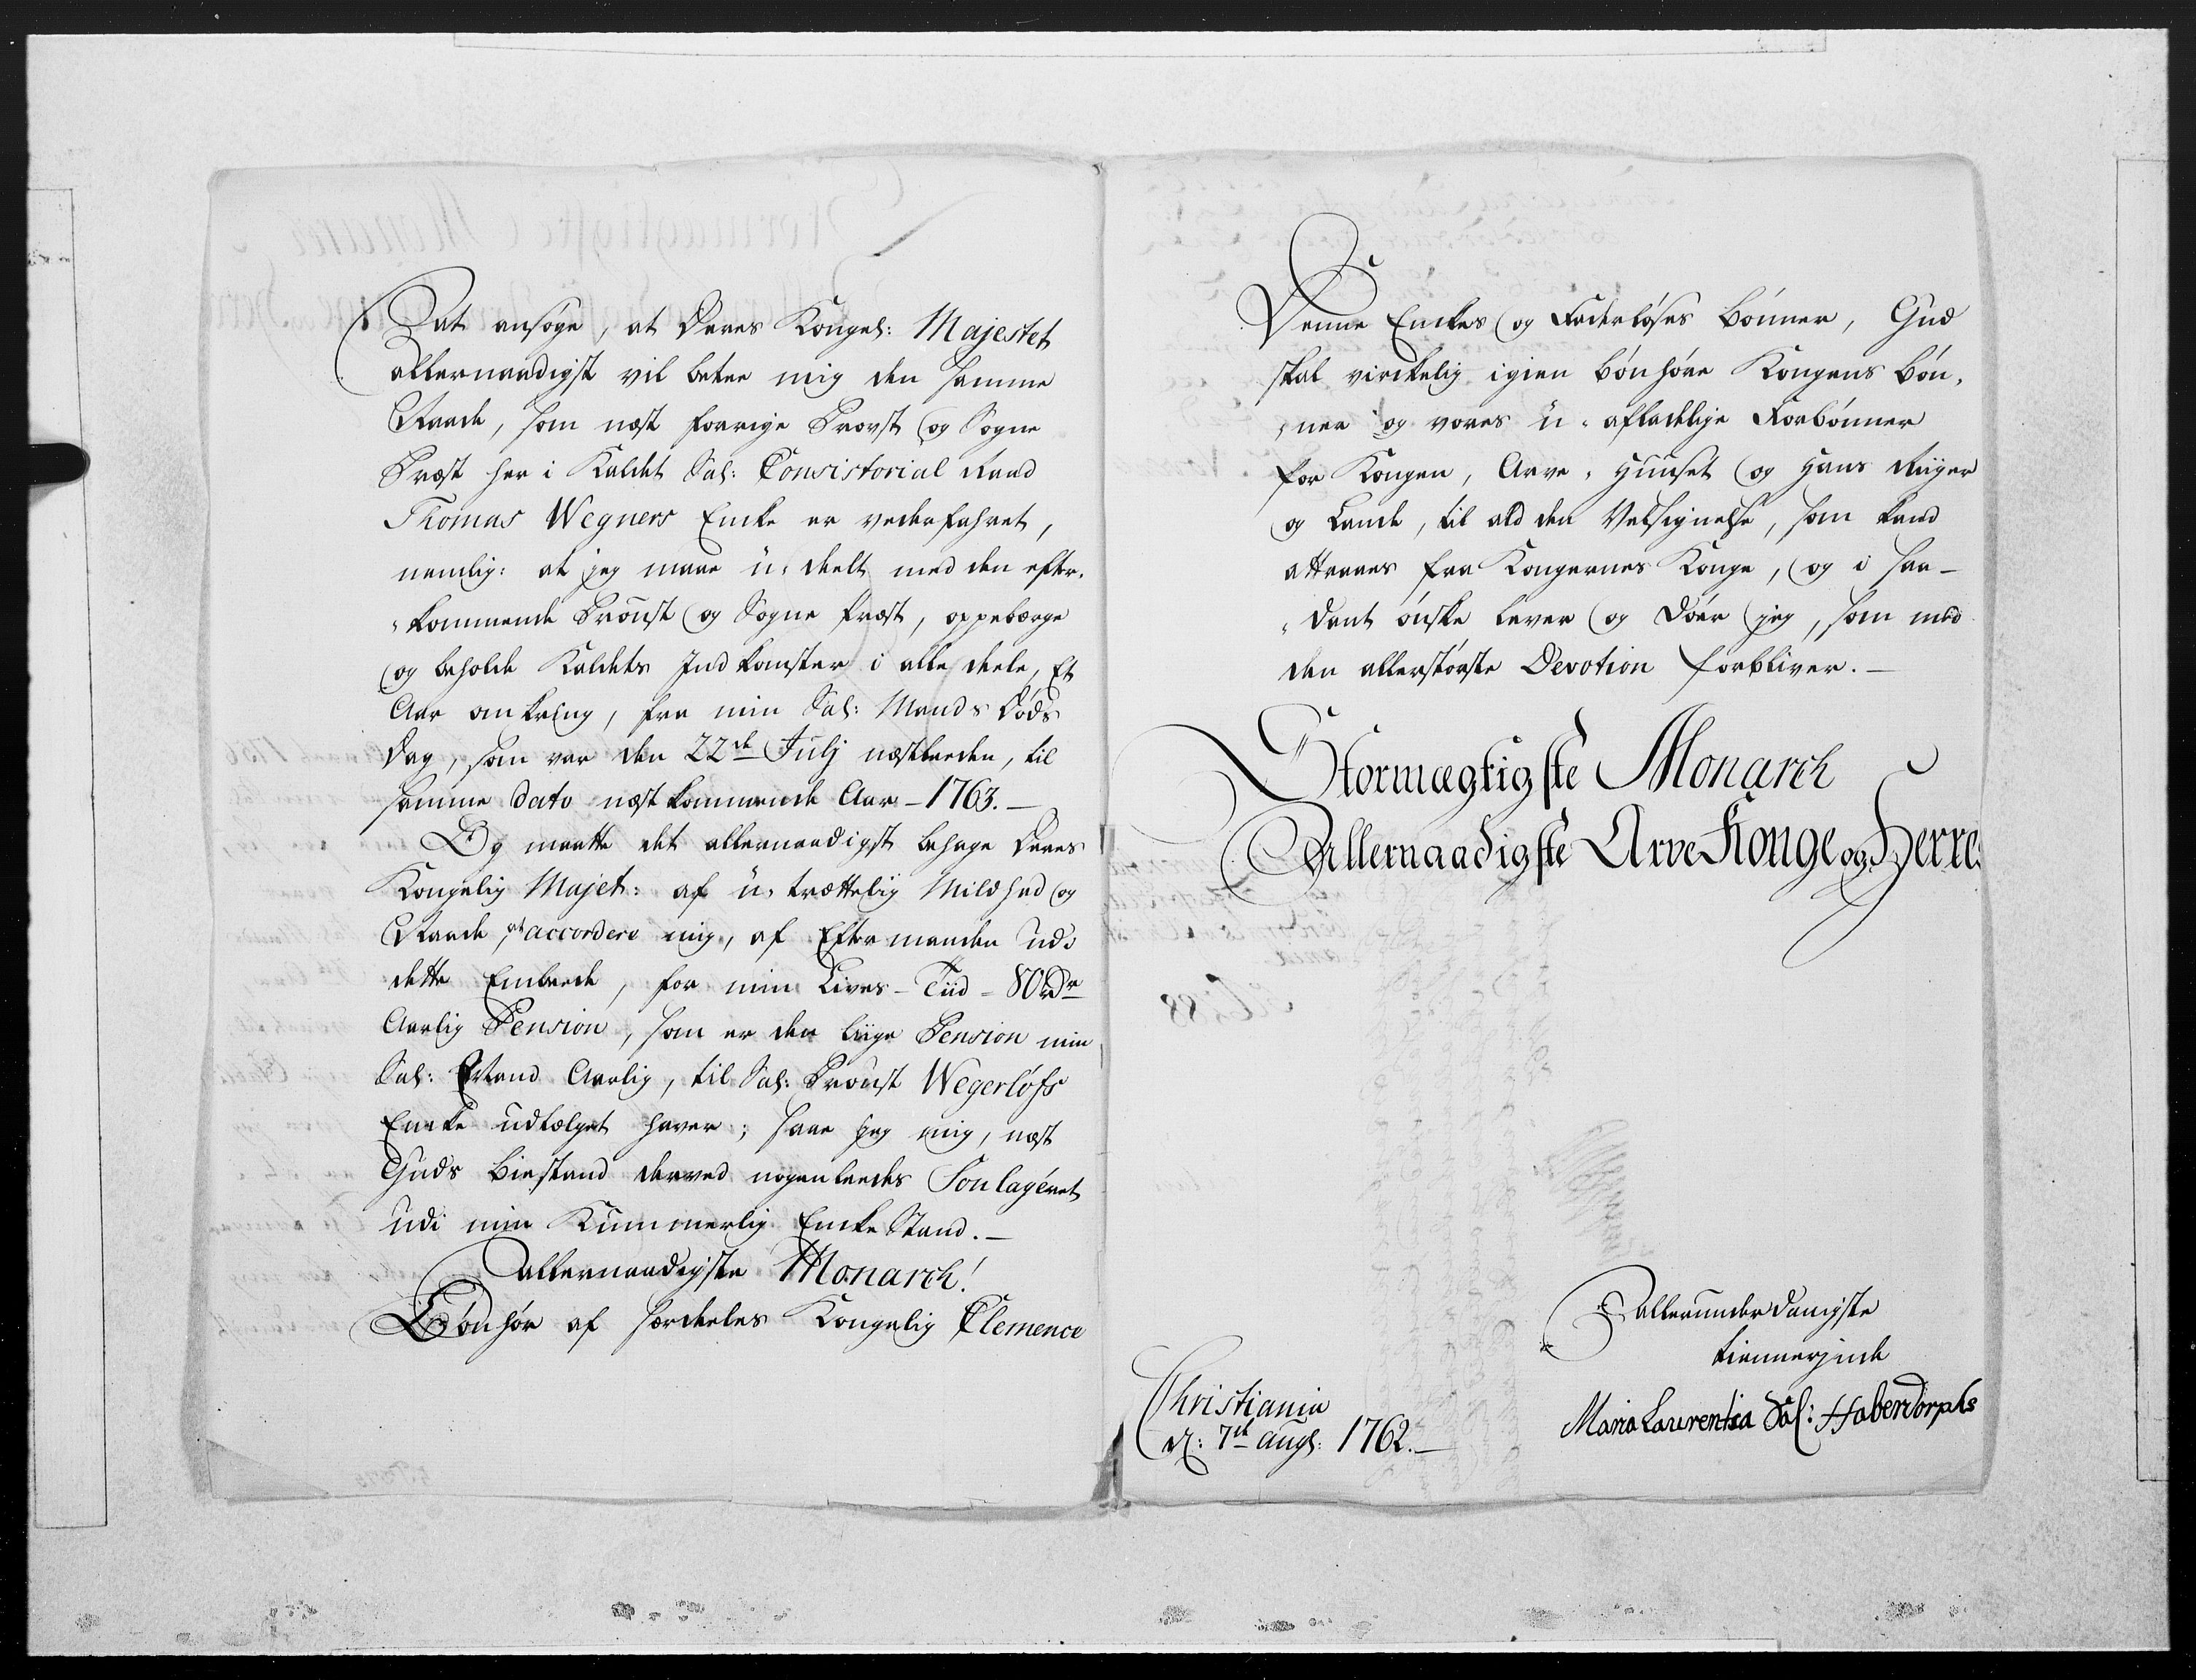 at ansøge, at Deres Kongel: Majestet
allernaadigst vil betee mig den samme
Naade, som næst forrige Provst og Sogne
Præst her i Kaldet Sal: Consistorial Raad
Thomas Wegners Encke er vederfahret,
nemlig: at jeg maae u-deelt med den efter-
-kommende Proust og Sogne Præst, oppebærge
og beholde Kaldets Indkomster i alle deele, Et
Aar omkring, fra min Sal: Mands Døds
Dag, som var den 22de Julj næstleeden, til
samme dato næstkommende Aar - 1763. -
Og maatte det allernaadigst behage Deres
Kongelig Majet: af u-trættelig Mildhed og
Naade, at accordere mig, af Eftermanden udi
dette Embede, for min Lives-Tiid - 80 rdr
Aarlig Pension, som er den liige Pension min
Sal: Mand Aarlig, til Sal: Proust Wegerløfs
Encke udtælget haver; saae jeg mig, næst
Guds biestand derved nogenleedes Soulagéret
udi min Kummerlig Encke Stand. -
allernaadigste Monarch!
Bønhør af særdeeles Kongelig Clemence
Denne Enckes og Faderløses bønner, Gud
skal virckelig igien bønhøre Kongens bøn-
-ner og vores u-afladelige Forbønner
for Kongen, Arve-Huuset og Hans Riiger
og Lande, til all den Velsignelse, som kand
attraaes fra Kongernes Konge, og i saa-
-dant ønske lever og Døer jeg, som med
den allerstørste Devotion forbliver. -
Stormægtigste Monarch
Allernaadigste Arve Konge og Herre
allerunderdanigste
tiennerjnde
Maria Laurentia Sal: Haberdorphs
Christiania
d: 7de Augs: 1762. -